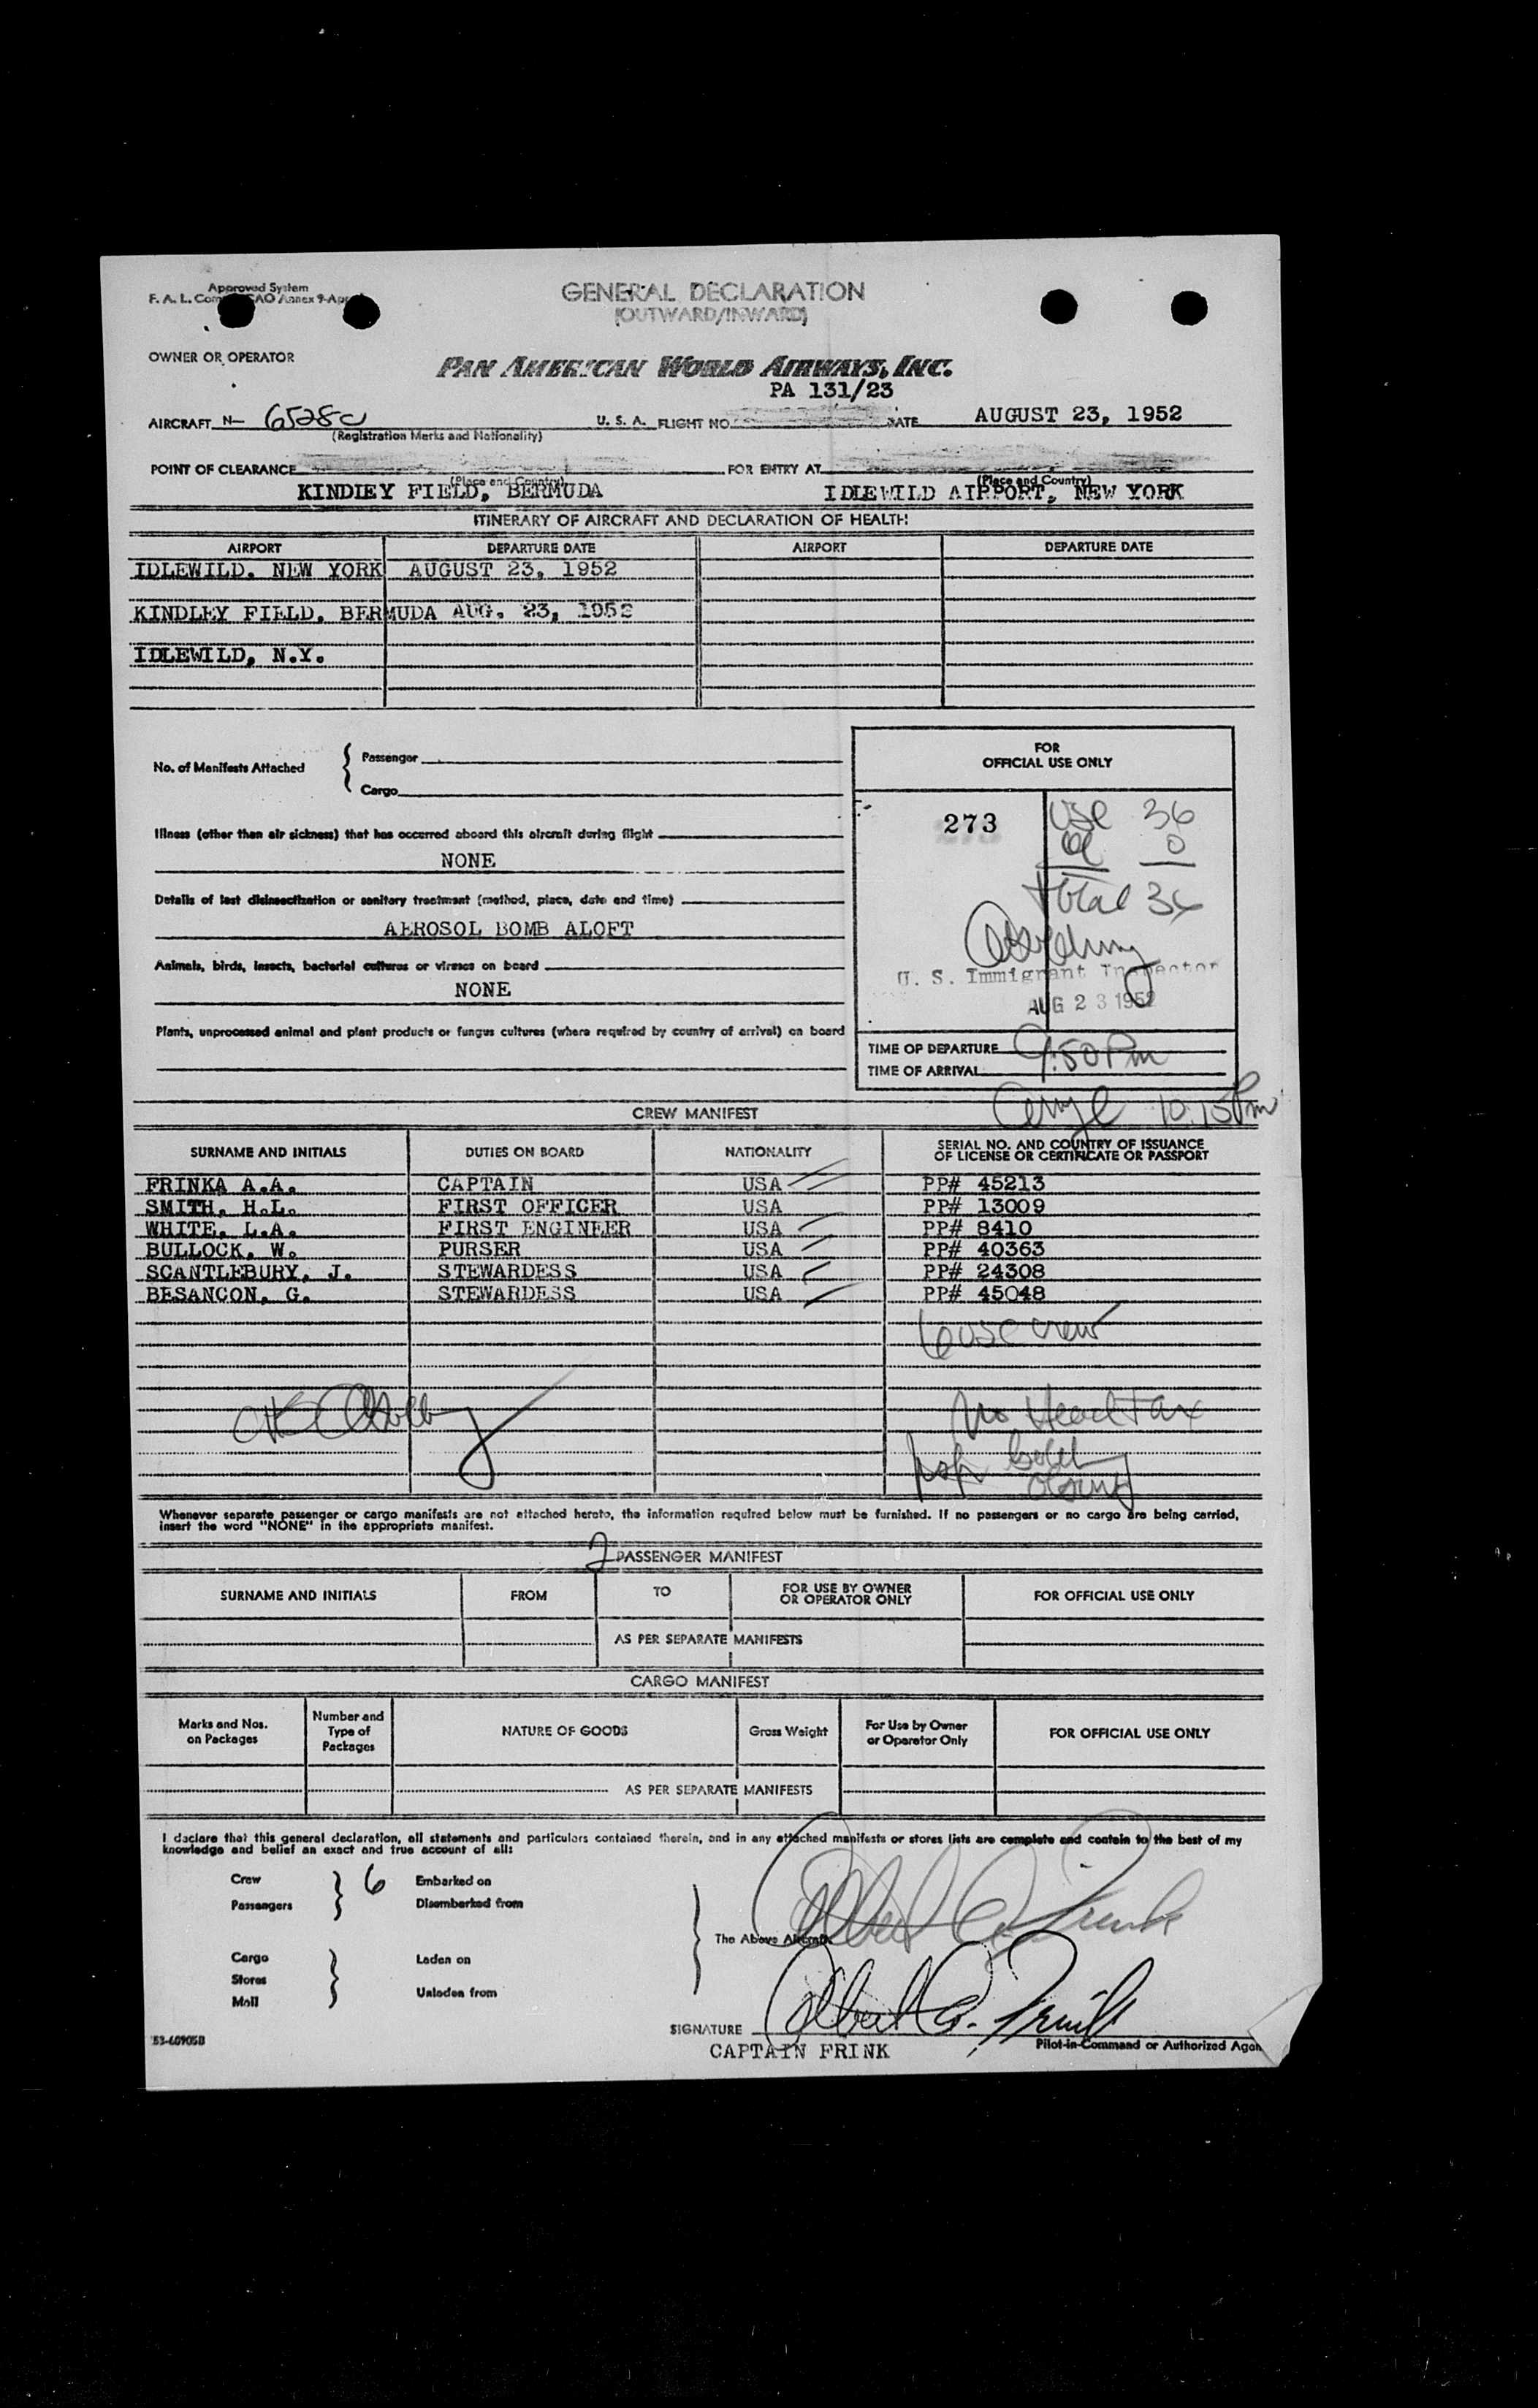 Approved System
F. A. L. Com AO Annex 9-App
GENERAL DECLARATION
(OUTWARD/INWARD)
OWNER OR OPERATOR
PAN AMERICAN WORLD AIRWAYS, INC.
PA 131/23
AIRCRAFT N- 6528C U. S. A. FLIGHT NO. DATE AUGUST 23, 1952
(Registration Marks and Nationality)
POINT OF CLEARANCE FOR ENTRY AT
(Place and Country) (Place and Country)
KINDLEY FIELD, BERMUDA IDLEWILD AIRPORT, NEW YORK
ITINERARY OF AIRCRAFT AND DECLARATION OF HEALTH
AIRPORT DEPARTURE DATE AIRPORT DEPARTURE DATE
IDLEWILD. NEW YORK AUGUST 23, 1952
KINDLEY FIELD. BERMUDA AUG. 23, 1952
IDLEWILD, N.Y.
No. of Manifests Attached { Passenger
Cargo
FOR
OFFICIAL USE ONLY
273 USC 36
al 0
total 36
Illness (other than air sickness) that has occurred aboard this aircraft during flight
NONE
Details of last disinsectization or sanitary treatment (method, place, date and time)
AEROSOL BOMB ALOFT
U. S. Immigrant Inspector
AUG 23 1952
Animals, birds, insects, bacterial cultures or viruses on board
NONE
Plants, unprocessed animal and plant products or fungus cultures (where required by country of arrival) on board
TIME OF DEPARTURE
TIME OF ARRIVAL 9:50 Pm
10:15 Pm
CREW MANIFEST
SURNAME AND INITIALS DUTIES ON BOARD NATIONALITY SERIAL NO. AND COUNTRY OF ISSUANCE
OF LICENSE OR CERTIFICATE OR PASSPORT
FRINKA A.A. CAPTAIN USA PP# 45213
SMITH, H.L. FIRST OFFICER USA PP# 13009
WHITE, L.A. FIRST ENGINEER USA PP# 8410
BULLOCK, W. PURSER USA PP# 40363
SCANTLEBURY, J. STEWARDESS USA PP# 24308
BESANCON, G. STEWARDESS USA PP# 45048
6 USC crew
No Head Tax
Whenever separate passenger or cargo manifests are not attached hereto, the information required below must be furnished. If no passengers or no cargo are being carried,
insert the word "NONE" in the appropriate manifest.
2 PASSENGER MANIFEST
SURNAME AND INITIALS FROM TO FOR USE BY OWNER
OR OPERATOR ONLY FOR OFFICIAL USE ONLY
AS PER SEPARATE MANIFESTS
CARGO MANIFEST
Marks and Nos.
on Packages Number and
Type of
Packages NATURE OF GOODS Gross Weight For Use by Owner
or Operator Only FOR OFFICIAL USE ONLY
AS PER SEPARATE MANIFESTS
I declare that this general declaration, all statements and particulars contained therein, and in any attached manifests or stores lists are complete and contain to the best of my
knowledge and belief an exact and true account of all:
Crew } 6 Embarked on
Passengers Disembarked from
The Above Aircraft
Albert A. Frink
Cargo } Laden on
Stores
Mail Unladen from
SIGNATURE Albert A. Frink
CAPTAIN FRINK Pilot-in-Command or Authorized Agen
53-60905B